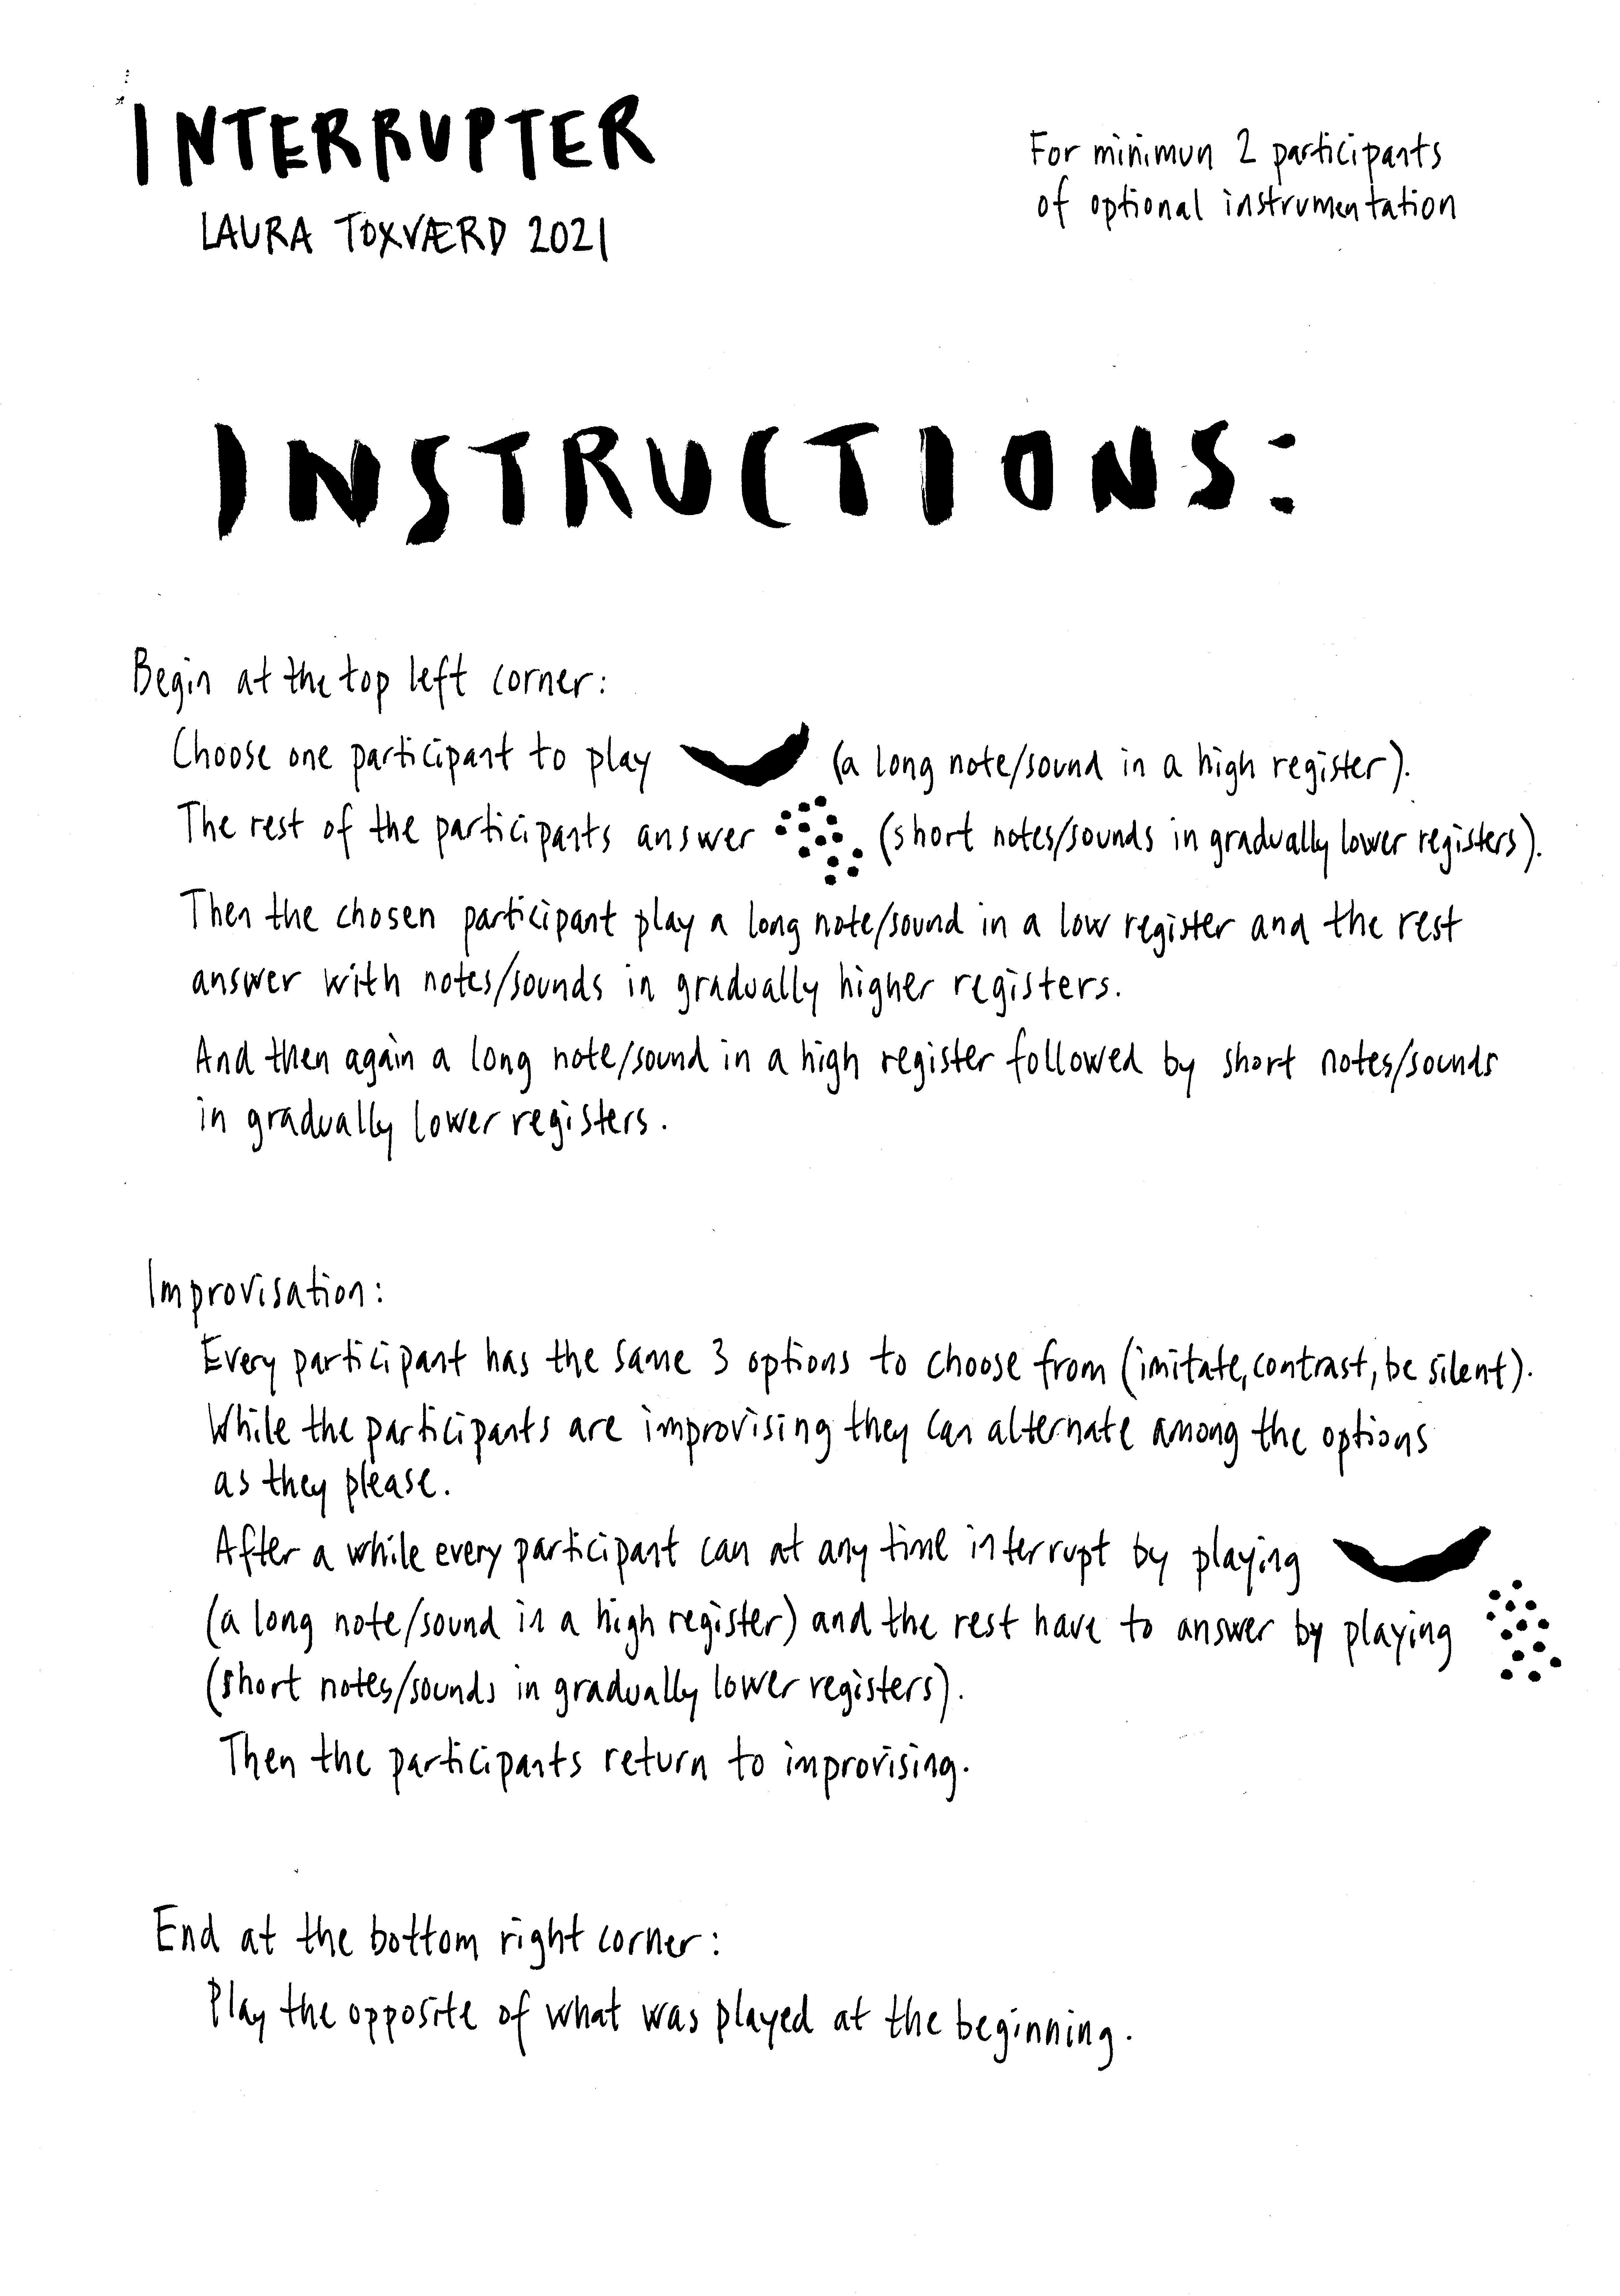 INTERRUPTER
LAURA TOXVÆRD 2021
For minimun 2 participants
of optional instrumentation
INSTRUCTIONS:
Begin at the top left corner:
Choose one participant to play (a long note/sound in a high register).
The rest of the participants answer (short notes/sounds in gradually lower registers).
Then the chosen participant play a long note/sound in a low register and the rest
answer with notes/sounds in gradually higher registers.
And then again a long note/sound in a high register followed by short notes/sounds
in gradually lower registers.
Improvisation:
Every participant has the same 3 options to choose from (imitate, contrast, be silent).
While the participants are improvising they can alternate among the options
as they please.
After a while every participant can at any time interrupt by playing
(a long note/sound in a high register) and the rest have to answer by playing
(short notes/sounds in gradually lower registers).
Then the participants return to improvising.
End at the bottom right corner:
Play the opposite of what was played at the beginning.